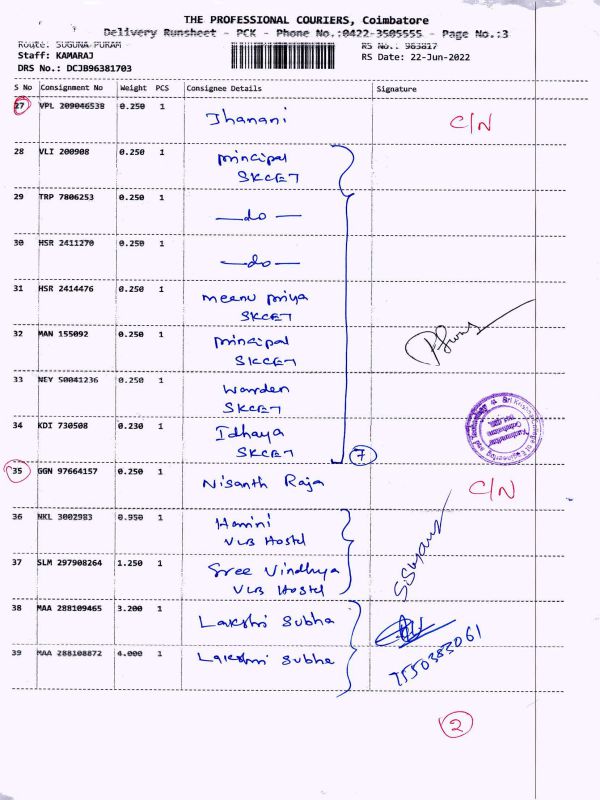 THE PROFESSIONAL COURIERS, Coimbatore
Delivery Runsheet - PCK - Phone No.:0422-3505555 - Page No.:3
Route: SUGUNA PURAM
RS No.: 963817
Staff: KAMARAJ
RS Date: 22-Jun-2022
DRS No.: DCJB96381703
S No Consignment No Weight PCS Consignee Details Signature
27 VPL 209046538 0.250 1 Jhanani C/N
28 VLI 200908 0.250 1 principal
SKCET
29 TRP 7806253 0.250 1 —do—
30 HSR 2411270 0.250 1 —do—
31 HSR 2414476 0.250 1 meenu priya
SKCET
32 MAN 155092 0.250 1 principal
SKCET
33 NEY 50041236 0.250 1 Warden
SKCET
34 KDI 730508 0.230 1 Idhaya
SKCET
7
35 GGN 97664157 0.250 1 Nisanth Raja C/N
36 NKL 3002983 0.950 1 Hamini
VLB Hostel
37 SLM 297908264 1.250 1 Sree Vindhya
VLB Hostel
38 MAA 288109465 3.200 1 Lakshmi Subha
7550383061
39 MAA 288108872 4.000 1 Lakshmi Subha
2